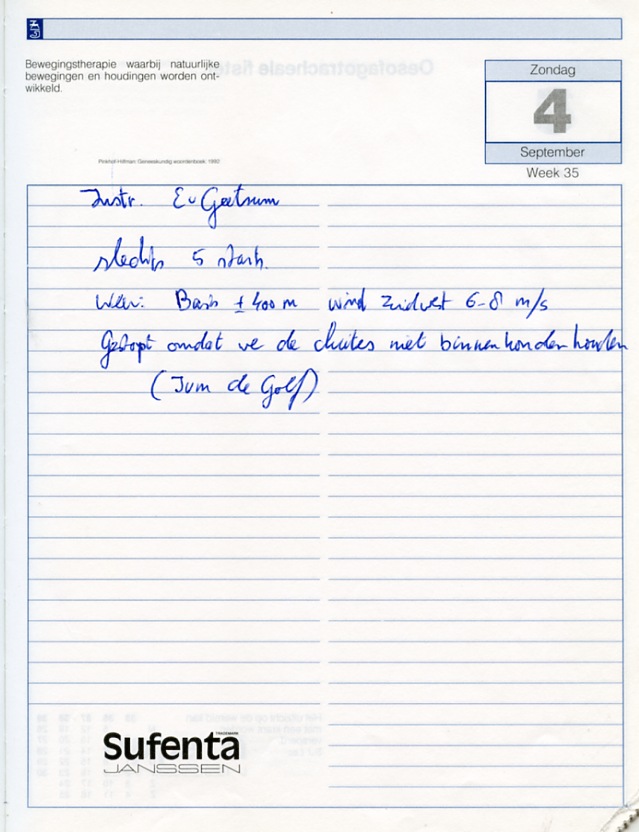 Bewegingstherapie waarbij natuurlijke
bewegingen en houdingen worden ont-
wikkeld.
Pinkhof-Hilfman: Geneeskundig woordenboek, 1992
Zondag
4
September
Week 35
Instr. E v Geetsum
slechts 5 starts.
Weer: Basis ± 400 m wind zuidwest 6-8 m/s
Gestopt omdat we de chutes niet binnen konden houden
(Jum de Golf)
Sufenta
TRADEMARK
JANSSEN